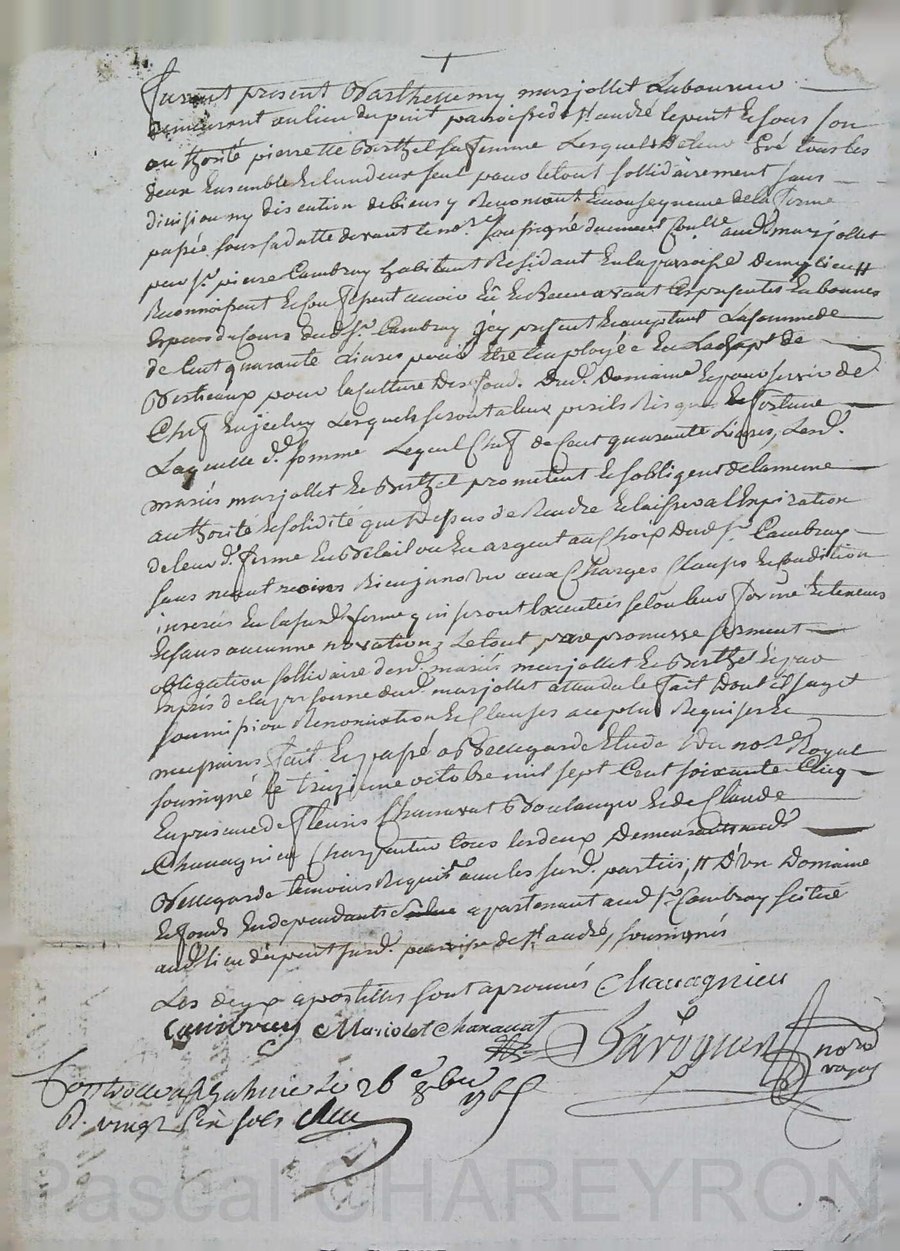 furent present Barthelemy marjollet Laboureur
demeurant au lieu du pint paroisse de st andré le puit & sous son
authorité pierrette Berthel sa femme Lesquels de leur gré tous les
deux Ensemble & lun deux seul pour le tout sollidairement sans
division ny discution de biens y Renoncant En conseqeunce de la ferme
passée sous sa datte devant le no.re soussigné aud. marjollet
par sr. pierre Cambray habitant Residant En la paroisse
Reconnoissent & Confessent avoir Eû & Recu avant Ces presentes En bonnes
Especes de Cours dud. sr. Cambray jcy present & acceptant La somme de
de Cent quarante Livres pour Etre Employée En Lachapt de
Bestieaux pour la Culture des fonds Dud. Domaine & pour servir de
Cheptel En jceluy Lesquels seront a leur perils Risques & fortune
Laquelle d. somme Lequel Cheptel de Cent quarante Livres, Lesd.
mariés marjollet & Berthel promettent & sobligent de la meme
authorité & solidité que dessus de Rendre & laisser a l'Expiration
de leurd. ferme En Betail ou En argent au Choix Dud. sr. Cambray
sans neant moins Rien jnnover aux Charges Clauses & Condition
inserés En la susd. ferme qui seront Executées selon leur forme & teneurs
& sans aucune novation, Le tout par promesse serment
obligation sollidaire desd. mariés marjollet & Berthel &
de la personne dud. marjollet attendu le fait Dont il sagit
soumission Renonciation & Clauses au plus Requises &
necessaires fait & passé a Bellegarde Etude Du no.re Royal
soussigné le treizieme octobre mil sept Cent soixante Cinq
En presence de fleuris Chanavat Boulanger & de Claude
Chavagnieu Charpentier tous les deux Demeurants aud.
Bellegarde temoins Requis avec les susd. parties, # D'un Domaine
& fonds En dependants apartenant aud. sr. Cambray scitué
aud. lieu du puit susd. paroisse de st. andré, soussignés
Les deux apostilles sont aprouvés Chavagnieu
Cambray Mariolet Chanavat no.re royal
a st Galmier le 26e 8bre 1765
R. vingt six sols
Pascal CHAREYRON